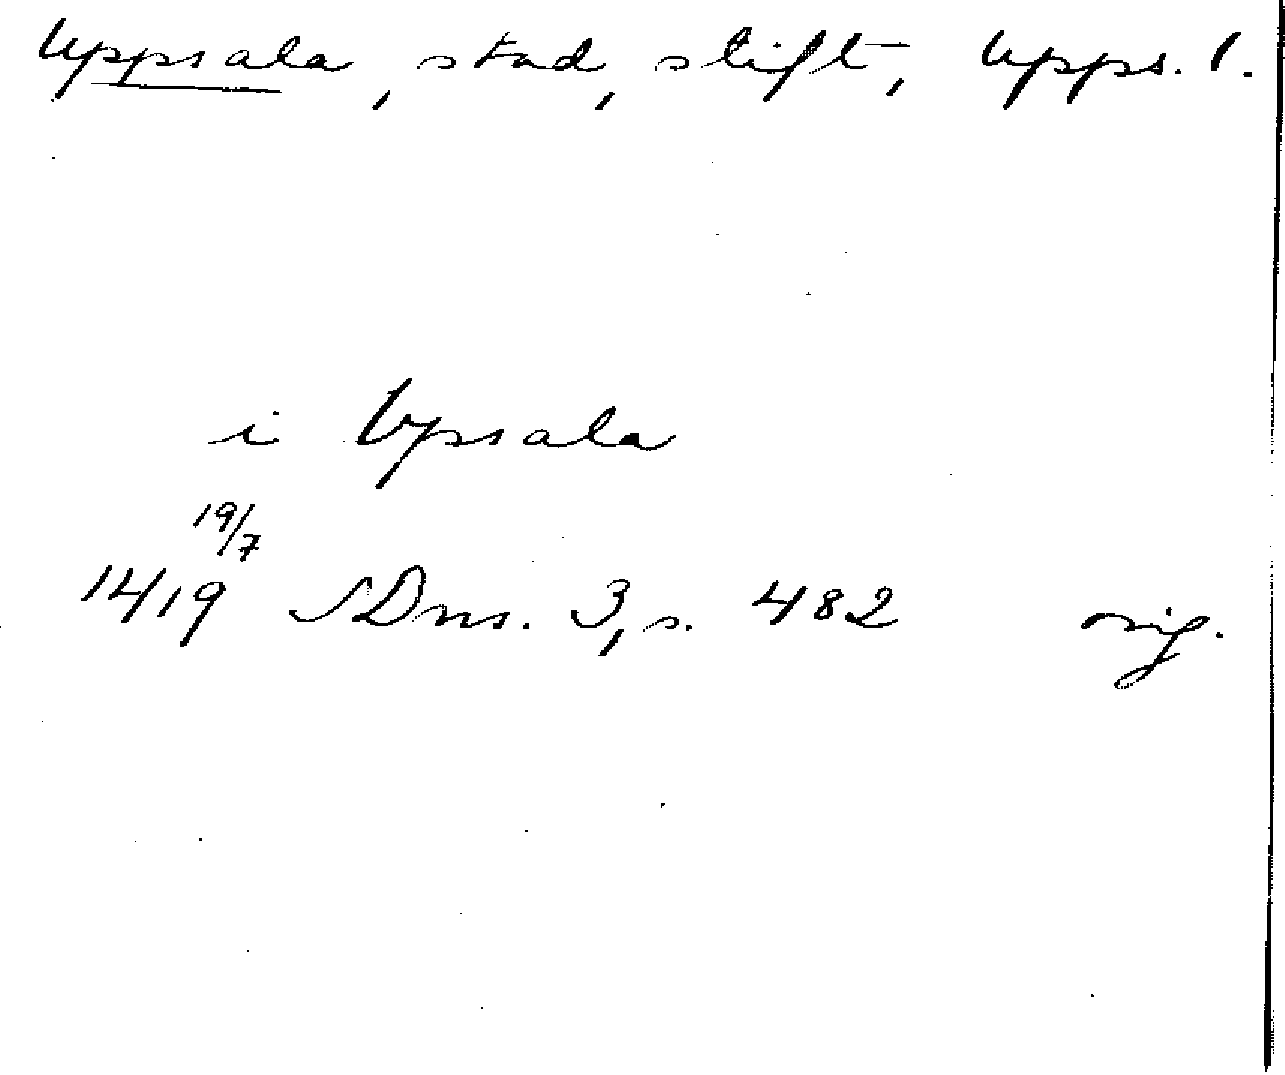 Uppsala, stad, stift, Upps. l.
i Vpsala
19/7
1419 SDns. 3, s. 482 orig.